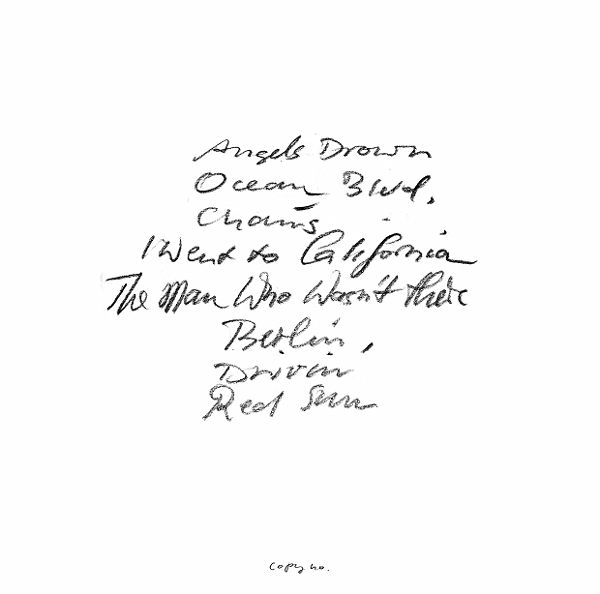 Angels Drown
Ocean Blvd.
Chains
I Went to California
The Man Who Wasn't There
Berlin
Drivin'
Red Sun
copy no.